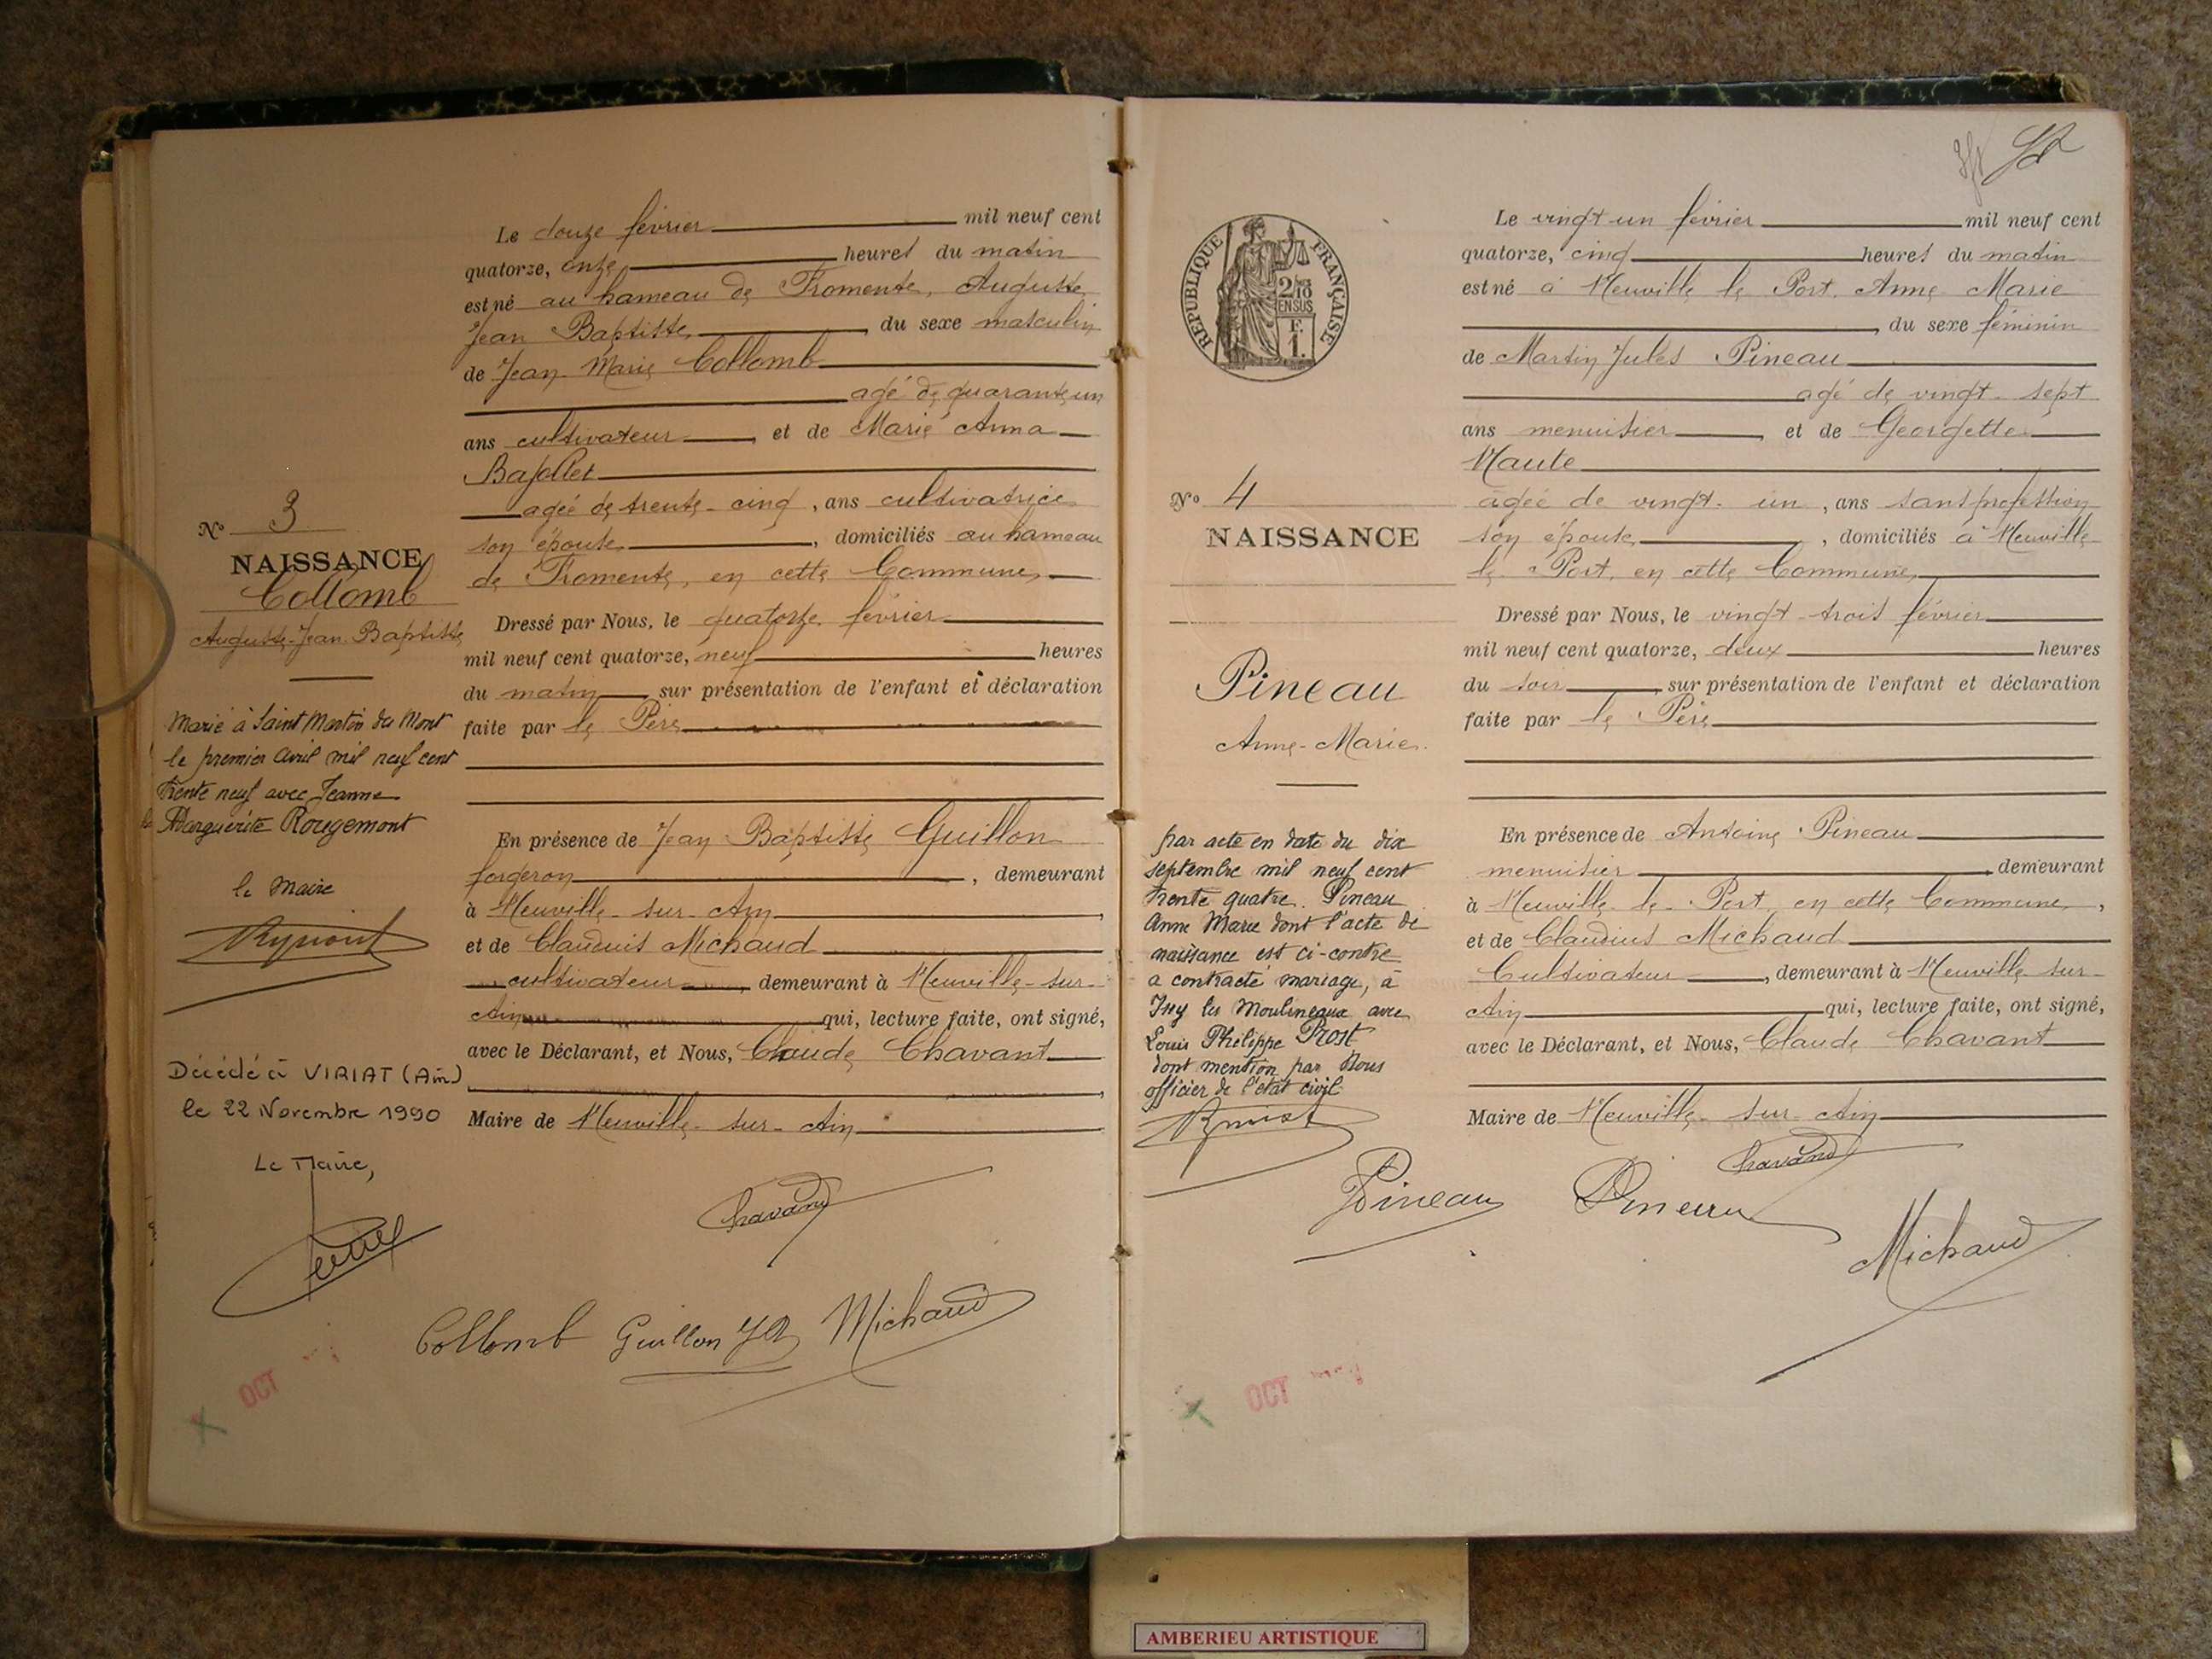 Le douze février mil neuf cent
quatorze, onze heures du matin
est né au hameau de Fromente, Auguste
Jean Baptiste, du sexe masculin
de Jean Marie Collomb
agé de quarante un
ans cultivateur, et de Marie Anna
Bajollet
agée de trente-cinq, ans cultivatrice
son épouse, domiciliés au hameau
de Fromente, en cette Commune,
Dressé par Nous, le quatorze février
mil neuf cent quatorze, neuf heures
du matin sur présentation de l'enfant et déclaration
faite par le Père
En présence de Jean Baptiste Guillon
forgeron, demeurant
à Neuville-sur-Ain,
et de Claudius Michaud
cultivateur, demeurant à Neuville-sur-
Ain qui, lecture faite, ont signé,
avec le Déclarant, et Nous, Claude Chavant
Maire de Neuville-sur-Ain
Nº 3
NAISSANCE
Collomb
Auguste-Jean-Baptiste
Marié à Saint Martin du Mont
le premier avril mil neuf cent
trente neuf avec Jeanne
Marguerite Rougemont
le Maire
Décédé à VIRIAT (Ain)
le 22 Novembre 1990
Le Maire,
Chavand
Collomb Guillon JB Michaud
OCT
RÉPUBLIQUE FRANÇAISE
2/10
EN SUS
F.
1.
Nº 4
NAISSANCE
Pineau
Anne-Marie
par acte en date du dix
septembre mil neuf cent
trente quatre. Pineau
Anne Marie dont l'acte de
naissance est ci-contre
a contracté mariage, à
Issy les Moulineaux avec
Louis Philippe Prost
dont mention par Nous
officier de l'état civil
Le vingt-un février mil neuf cent
quatorze, cinq heures du matin
est né à Neuville le Port, Anne Marie
, du sexe féminin
de Martin Jules Pineau
agé de vingt-sept
ans menuisier, et de Georgette
Naute
agée de vingt-un, ans sans profession
son épouse, domiciliés à Neuville
le Port, en cette Commune,
Dressé par Nous, le vingt-trois février
mil neuf cent quatorze, deux heures
du soir, sur présentation de l'enfant et déclaration
faite par le Père
En présence de Antoine Pineau
menuisier, demeurant
à Neuville-le-Port, en cette Commune,
et de Claudius Michaud
Cultivateur, demeurant à Neuville-sur-
Ain qui, lecture faite, ont signé,
avec le Déclarant, et Nous, Claude Chavant
Maire de Neuville-sur-Ain
Chavand
Pineau Pineau
Michaud
OCT
AMBERIEU ARTISTIQUE